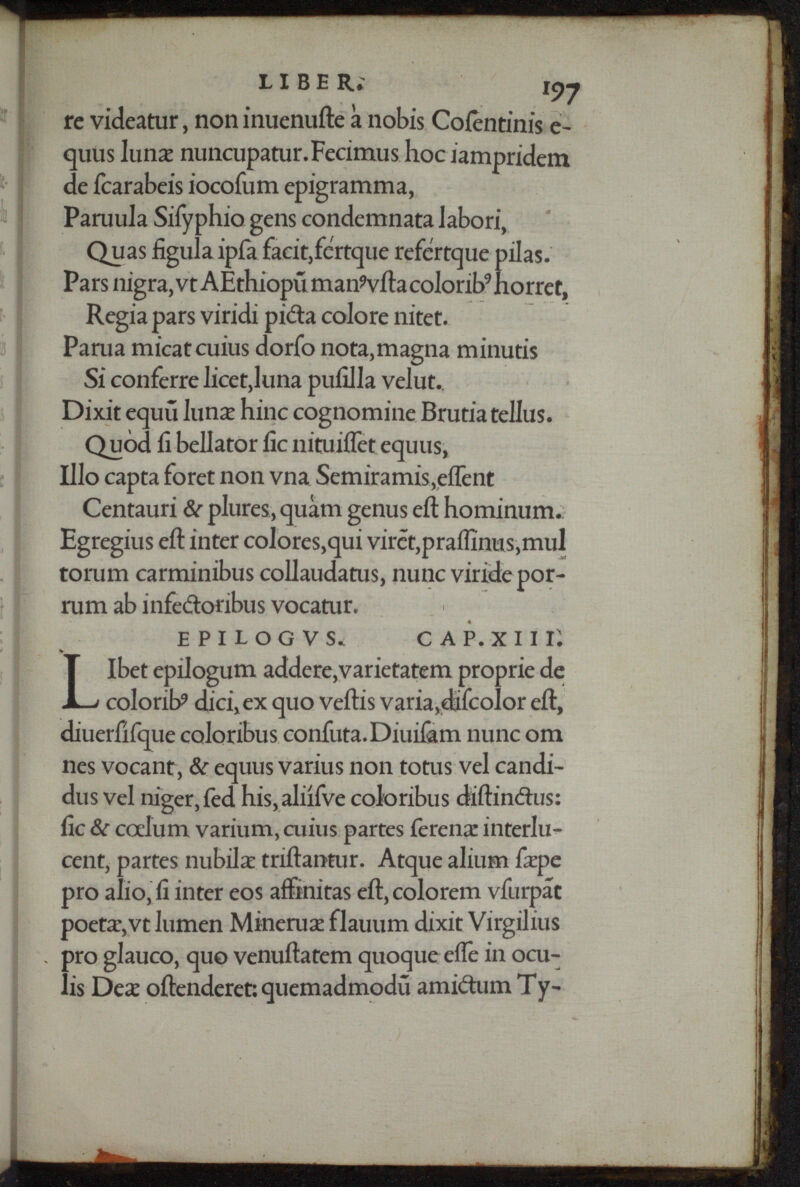 LIBER. 197
re videatur, non inuenuſte à nobis Coſentinis e-
quus lunæ nuncupatur. Fecimus hoc iampridem
de ſcarabeis iocoſum epigramma,
Paruula Siſyphio gens condemnata labori,
Quas figula ipſa facit, fértque refértque pilas.
Pars nigra, vt AEthiopũ manꝰ vſta coloribꝰ horret,
Regia pars viridi picta colore nitet.
Parua micat cuius dorſo nota, magna minutis
Si conferre licet, luna puſilla velut.
Dixit equũ lunæ hinc cognomine Brutia tellus.
Quòd ſi bellator ſic nituiſſet equus,
Illo capta foret non vna Semiramis, eſſent
Centauri & plures, quàm genus eſt hominum.
Egregius eſt inter colores, qui virēt, praſſinus, mul
torum carminibus collaudatus, nunc viride por-
rum ab infectoribus vocatur.
EPILOGVS. CAP. XIII.
LIbet epilogum addere, varietatem proprie de
coloribꝰ dici, ex quo veſtis varia, diſcolor eſt,
diuerſiſque coloribus conſuta. Diuiſam nunc om
nes vocant, & equus varius non totus vel candi-
dus vel niger, ſed his, aliíſve coloribus diſtinctus:
ſic & cœlum varium, cuius partes ſerenæ interlu-
cent, partes nubilæ triſtantur. Atque alium ſæpe
pro alio, ſi inter eos affinitas eſt, colorem vſurpāt
poetæ, vt lumen Mineruæ flauum dixit Virgilius
pro glauco, quo venuſtatem quoque eſſe in ocu-
lis Deæ oſtenderet: quemadmodũ amictum Ty-